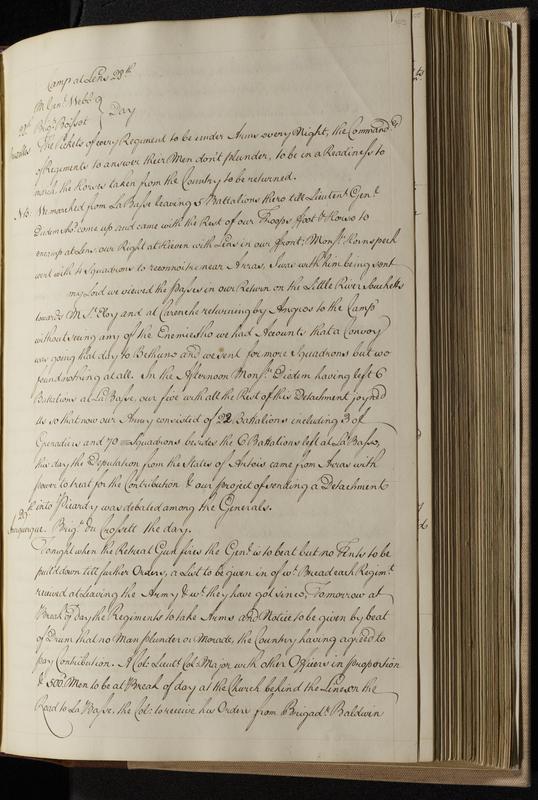 Camp at Lens 28th
M: Genl. Webb
22d Brigr. Boisset } Day
Bruxelles The Pickets of every Regiment to be under Arms every Night, the Commandrs
of Regiments to answer their Men don't plunder, to be in a Readiness to
march, the Horses taken from the Country to be returned.
Nta: We marched from La Basse leaving 5 Battalions there till Lieutent. Genl.
Diedem sho.d come up and came with the Rest of our Troops, foot & Horse to
encamp at Lens, our Right at Lieven with Lens in our ffront; Monsr. Hornspech
went with 4 Squadrons to reconnoitre near Arras, I was with him being sent
my Lord we viewed the Passes in our Return on the Little River Souchetts
towards M: St. Eloy and at Carenche returning by Angres to the Camp
without seing any of the Enemies tho we had Accounts that a Convoy
was going that day to Bethune and we sent for more Squadrons but we
found nothing at all. In the Afternoon Monsr. Diedem having left 6
Battalions at La Basse, our five with all the Rest of this Detachment joyned
us so that now our Army consisted of 22 Battalions including 3 of
Grenadiers and 70 Squadrons besides the 6 Battalions left at La Basse,
this day the Deputation from the States of Artois came from Arras with
power to treat for the Contribution & our project of sending a Detachment
into Picardy was debated among the Generals.
29th Brigr. du Crossett the day.
To night when the Retreat Gun fires the Genl. is to beat but no Tents to be
pull'd down till further Orders, a List to be given in of wt. Bread each Regimt.
receiv'd at Leaving the Army & wt. they have got since, Tomorrow at
Break of Day the Regiments to take Arms and Notice to be given by beat
of Drum that no Man plunder or Morade, the Country having agreed to
pay Contribution. A Col: Lieut Col: Major with other Officers in proportion
& 500 Men to be at Break of day at the Church behind the Line on the
Road to La Basse, the Col: to receive his Orders from Brigadr. Baldwin